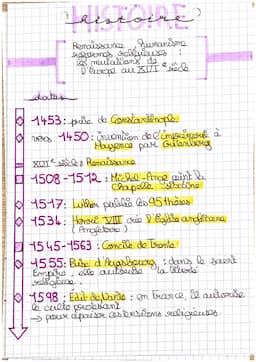 HISTOIRE
histoire
Renaissance, Humanisme
réformes religieuses :
les mutations de
l'Europe au XVIe siècle
dates
1453 : prise de Constantinople
vers 1450 : invention de l'imprimerie à
Mayence par Gutenberg
XVIe siècle : Renaissance
1508-1512 : Michel-Ange peint la
Chapelle Sixtine
1517 : Luther publie les 95 thèses
1534 : Henri VIII crée l'Eglise anglicane
(Angleterre)
1545-1563 : Concile de Trente
1555 : Paix d'Augsbourg : dans le saint
Empire, elle autorise la liberté
religieuse.
1598 : Édit de Nantes : en France, il autorise
le culte protestant
→ pour apaiser les tensions religieuses.